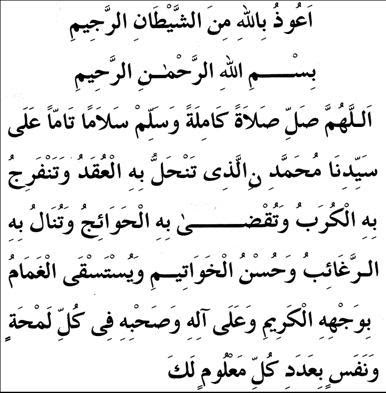 اَعُوذُ بِاللهِ مِنَ الشَّيْطَانِ الرَّجِيمِ
بِسْـــــمِ اللهِ الرَّحْمٰـنِ الرَّحِيمِ
اَللّٰهُمَّ صَلِّ صَلَاةً كَامِلَةً وَسَلِّمْ سَلَامًا تَامًّا عَلَى
سَيِّدِنَا مُحَمَّدِ نِ الَّذِى تَنْحَلُّ بِهِ الْعُقَدُ وَتَنْفَرِجُ
بِهِ الْكُرَبُ وَتُقْضَـــــىٰ بِهِ الْحَوَائِجُ وَتُنَالُ بِهِ
الـرَّغَائِبُ وَحُسْنُ الْخَوَاتِيـمِ وَيُسْتَسْقَى الْغَمَامُ
بِوَجْهِهِ الْكَرِيمِ وَعَلَى آلِهِ وَصَحْبِهِ فِى كُلِّ لَمْحَةٍ
وَنَفَسٍ بِعَدَدِ كُلِّ مَعْلُومٍ لَكَ